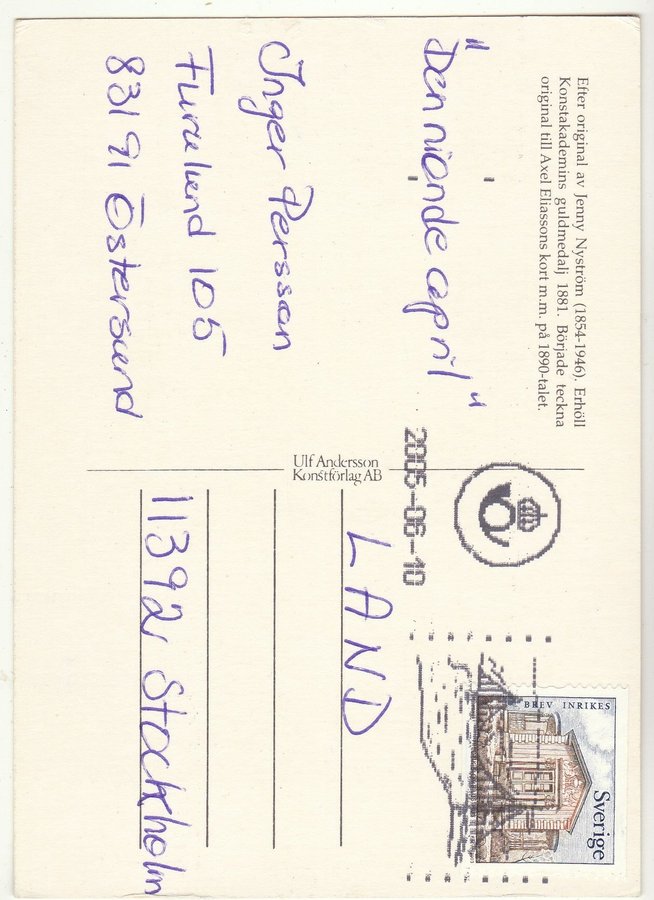 Efter original av Jenny Nyström (1854-1946). Erhöll
Konstakademins guldmedalj 1881. Började teckna
original till Axel Eliassons kort m.m. på 1890-talet.
"Den nionde april"
Inger Persson
Furulund 105
831 91 Östersund
Ulf Andersson
Konstförlag AB
2005-06-10
BREV INRIKES
Sverige
LAND
11392 Stockholm